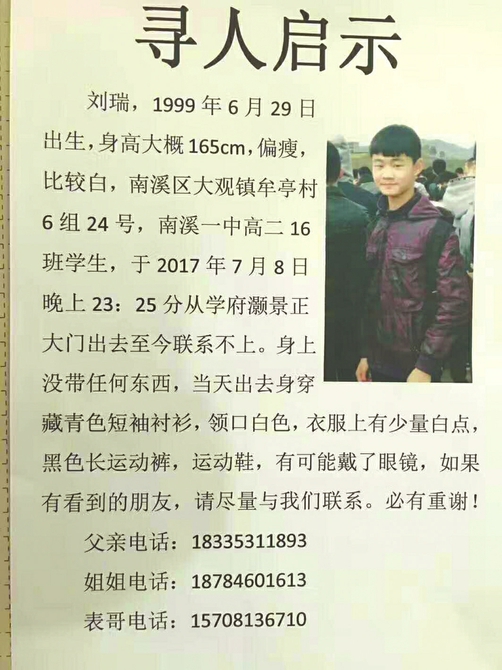 寻人启示
刘瑞，1999 年 6 月 29 日
出生，身高大概 165cm，偏瘦，
比较白，南溪区大观镇牟亭村
6 组 24 号，南溪一中高二 16
班学生，于 2017 年 7 月 8 日
晚上 23：25 分从学府灏景正
大门出去至今联系不上。身上
没带任何东西，当天出去身穿
藏青色短袖衬衫，领口白色，衣服上有少量白点，
黑色长运动裤，运动鞋，有可能戴了眼镜，如果
有看到的朋友，请尽量与我们联系。必有重谢！
父亲电话：18335311893
姐姐电话：18784601613
表哥电话：15708136710